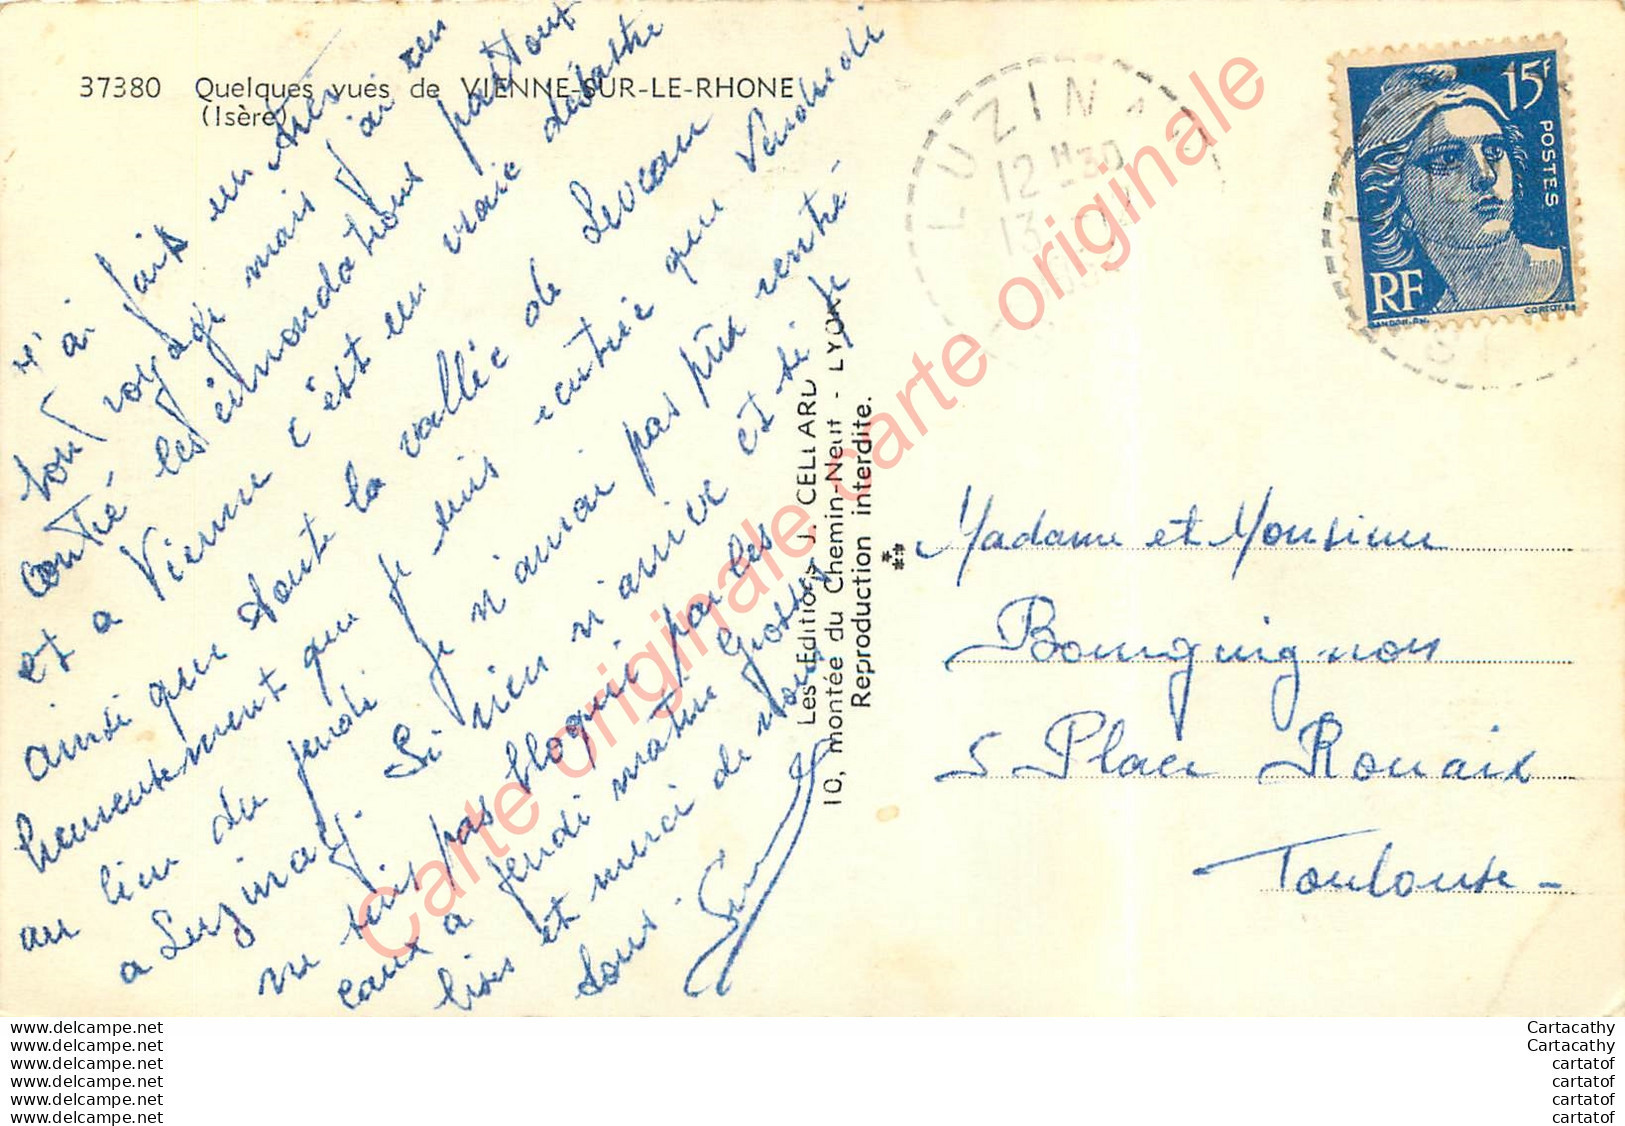 37380 Quelques vues de VIENNE-SUR-LE-RHONE
(Isère)
J'ai fait un très
bon voyage mais j'ai ren
contré les innondations partout
et a Vienne c'est un vraie désastre
ainsi que toute la vallée de
heureusement que je suis rentrée que Vendredi
au lieu du jeudi je n'aurai pas pu rentré
a Luzinay. Si rien n'arrive et si je
ne suis pas bloqué par les
eaux a jeudi matin Grosses
bises et merci de vous
tous.
Les Editions J. CELLARD
10, montée du Chemin-Neuf - LYON
Reproduction interdite.
LUZINAY
12 H 30
13
15F
POSTES
RF
GANDON.
CORTOT.
Madame et Monsieur
Bourguignon
5 Place Rouaix
Toulouse -
Carte originale carte originale carte originale
www.delcampe.net
www.delcampe.net
www.delcampe.net
www.delcampe.net
www.delcampe.net
www.delcampe.net
Cartacathy
Cartacathy
cartatof
cartatof
cartatof
cartatof